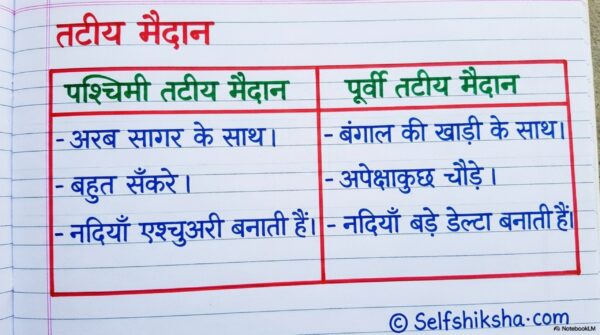 तटीय मैदान
पश्चिमी तटीय मैदान | पूर्वी तटीय मैदान
- अरब सागर के साथ। | - बंगाल की खाड़ी के साथ।
- बहुत सँकरे। | - अपेक्षाकुछ चौड़े।
- नदियाँ एश्चुअरी बनाती हैं। | - नदियाँ बड़े डेल्टा बनाती हैं।
© Selfshiksha.com
NotebookLM